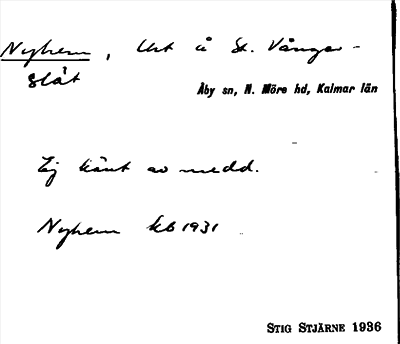 Nyhem, Urt å St. Vånger-
slät
Åby sn, N. Möre hd, Kalmar län
Ej känt av medd.
Nyhem kb 1931
STIG STJÄRNE 1936